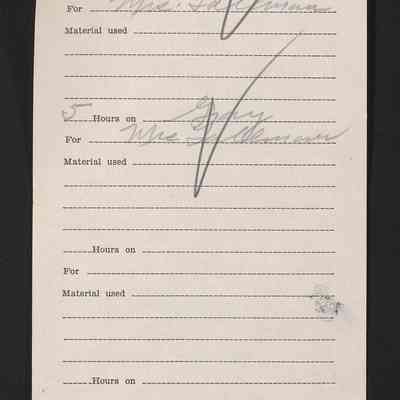 For Mrs.
Material used
5 Hours on Gray
For Mrs
Material used
Hours on
For
Material used
Hours on